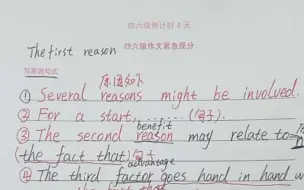 四六级倒计划4天
The first reason
四六级作文紧急提分
写原因句式
原因如下
① Several reasons might be involved.
② For a start,......(句子).
benefit
③ The second reason may relate to
(the fact that) 句子
advantage
④ The third factor goes hand in hand w